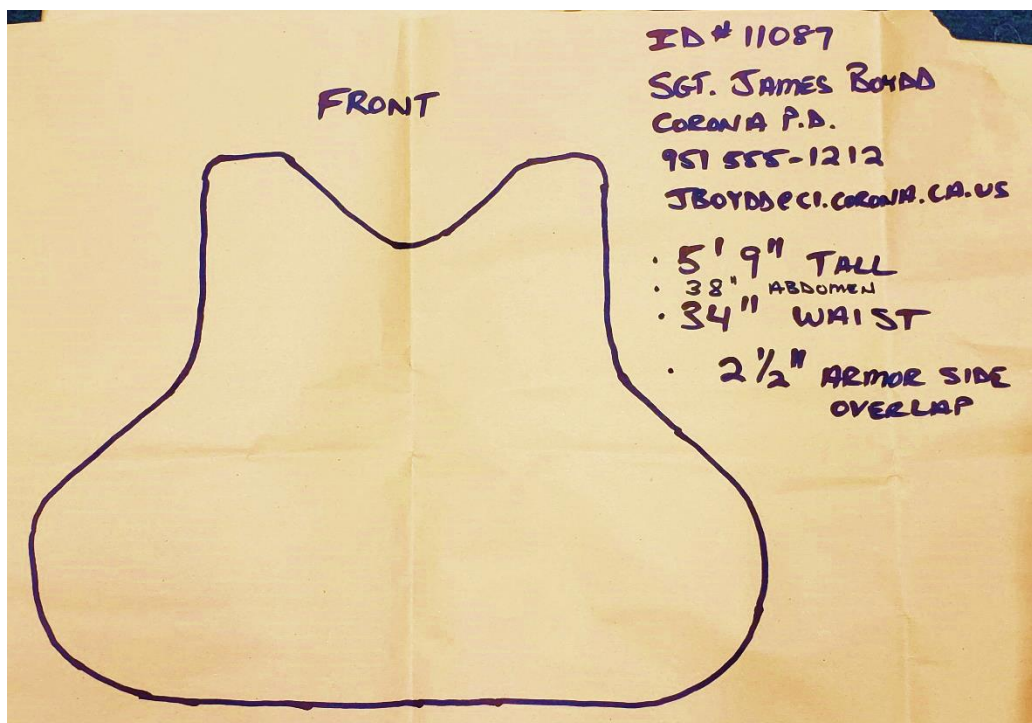 FRONT
ID# 11087
SGT. JAMES BOYDD
CORONA P.D.
951 555-1212
JBOYDD@CI.CORONA.CA.US
· 5' 9" TALL
· 38" ABDOMEN
· 34" WAIST
· 2 1/2" ARMOR SIDE
OVERLAP